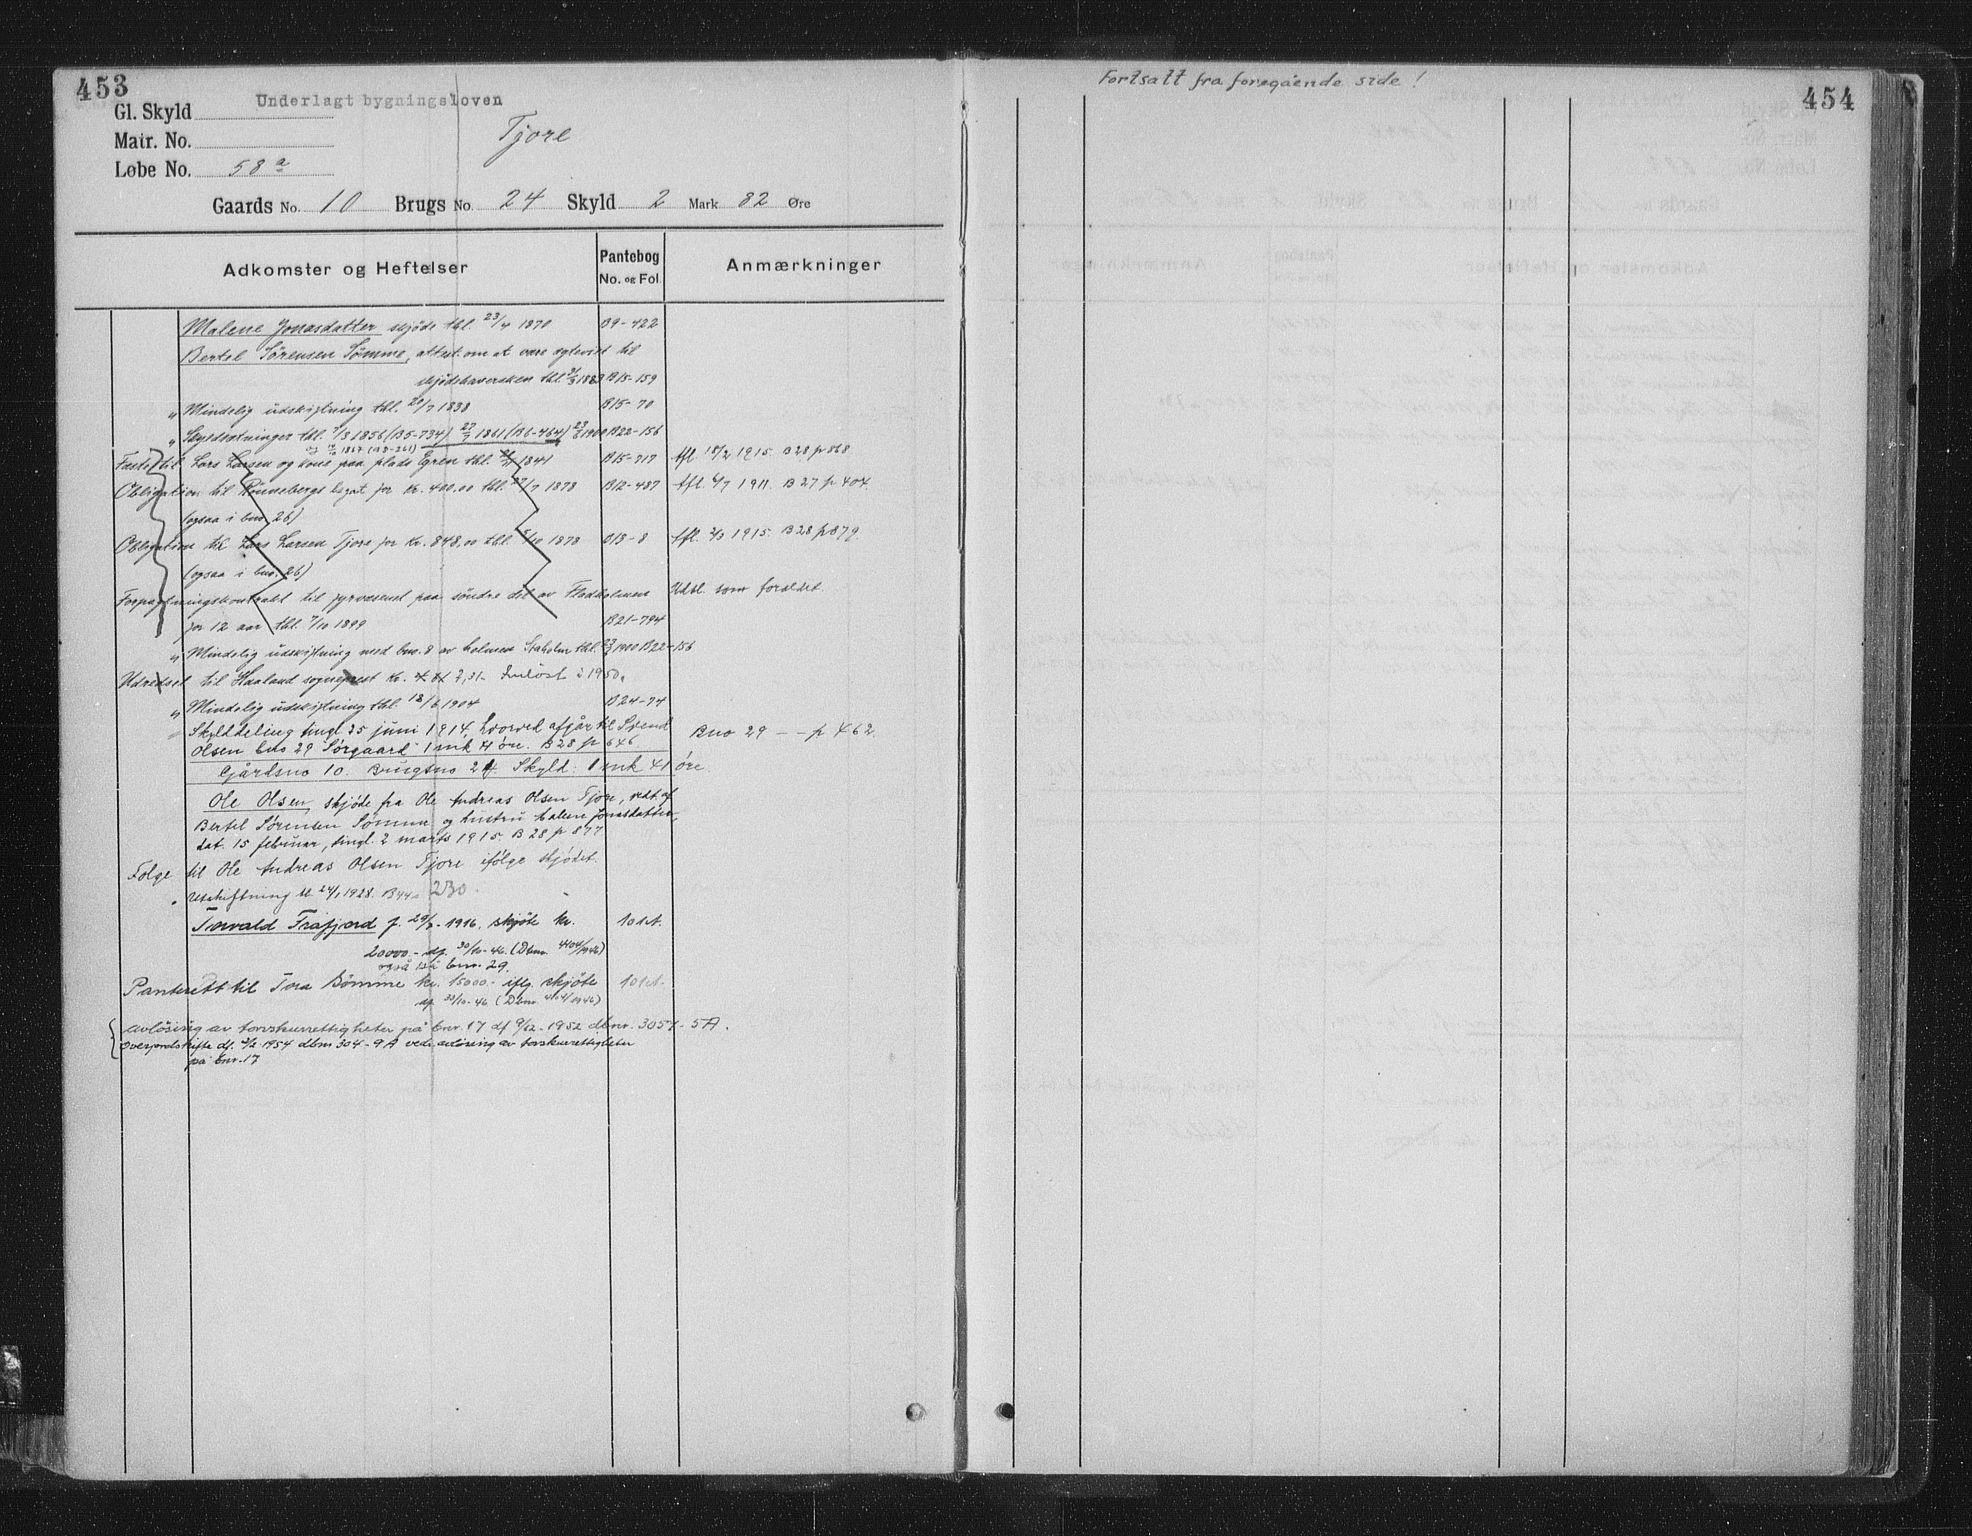 453
Underlagt bygningsloven
Gl. Skyld
Matr. No.
Tjore
Løbe No. 58 a
Gaards No. 10 Brugs No. 24 Skyld 2 Mark 82 Øre
Adkomster og Heftelser
Pantebog No. og Fol.
Anmærkninger
Malene Jonasdatter skjøde tbl. 23/4 1870 B9-422
Bertel Sørensen Sømme, attest om at være egteviet til
skjødehaversken tbl. 1883 B15-159
" Mindelig udskiftning tbl. 20/7 1838 B15-70
" Skydsetninger tbl. 7/3 1856 (B5-734) 1861 (B6-464) 1900 B22-156
1867 (B8-261)
Feste til Lars Larsen og kone paa plads Egren tbl. 1841 B15-717 Afl. 18/2 1915. B28 p 868
Obligation til Rønnebergs legat for kr. 400,00 tbl. 27/7 1878 B12-487 Afl. 6/7 1911. B27 p 404.
(ogsaa i bno. 26)
Obligation til Lars Larsen Tjore for kr. 848,00 tbl. 5/10 1878 B13-8 Afl. 2/3 1915. B28 p 879.
(ogsaa i bno. 26)
Forpagtningskontrakt til fyrvæsenet paa søndre del av Fladholmen Udsl. som forældet.
for 12 aar tbl. 7/10 1899 B21-794
" Mindelig udskiftning med bno. 8 av holmen Staholm tbl. 1900 B22-156
Udredsel til Haaland sogneprest kr. 7,31. Innløst i 1950.
" Mindelig udskiftning tbl. 18/6 1904 B24-74
" Skylddeling tingl. 25 juni 1914, hvorved afgår til Svend
Olsen bno 29 Sørgaard 1 mk 41 øre. B28 p 646 Bno 29 -- p 462
Gårdsno 10. Brugsno 24. Skyld: 1 mk 41 øre
Ole Olsen, skjøde fra Ole Andreas Olsen Tjore, vedt. af
Bertil Sørensen Sømme og hustru Malene Jonasdatter,
dat. 15 februar, tingl. 2 marts 1915 B28 p 877
Følge til Ole Andreas Olsen Tjore ifølge skjødet.
" Utskiftning tl. 24/1 1928. B44. 230.
Torvald Frafjord f. 29/3-1916, skjøte kr. 101A.
20000.- df. 30/10-46. (Dbnr. 4404/1946)
også på bnr. 29.
Panterett til Tora Sømme kr. 15000.- iflg. skjøte 101A.
df. 30/10-46 (Dbnr. 4404/1946)
Avløsing av torvskurrettigheter på bnr. 17 df 9/12-1952 dbnr. 3057-5A.
Overjordskifte df. 2/2 1954 dbnr 304-9A vedr. avløsing av torskurrettigheter
på bnr. 17
Fortsatt fra foregående side!
454